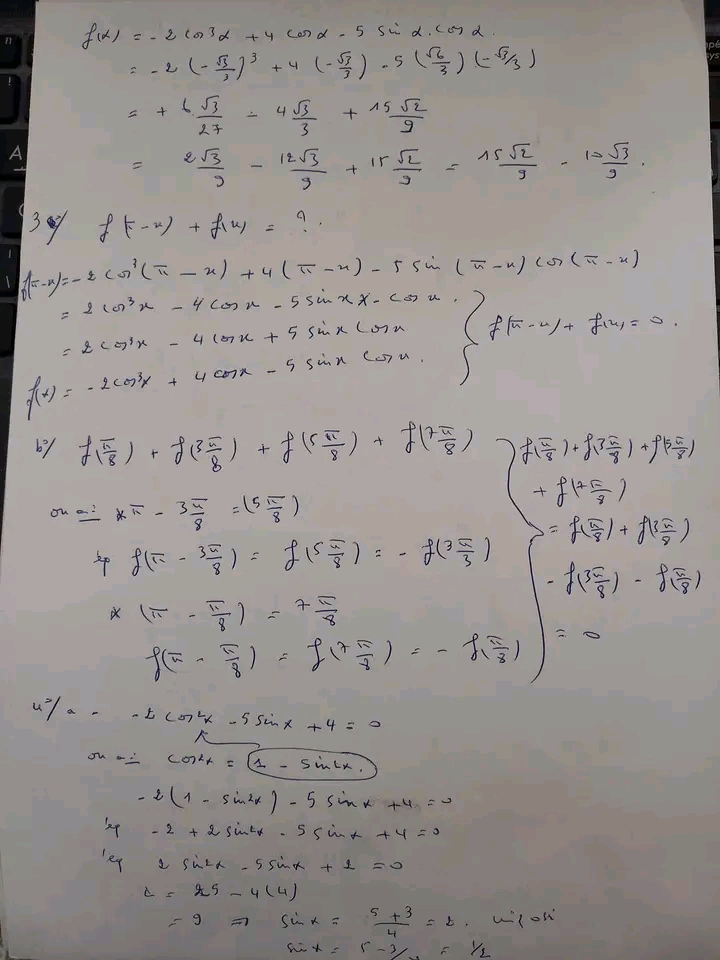 f(α) = -2 cos³α + 4 cos α - 5 sin α . cos α.
= -2 (-√3/3)³ + 4 (-√3/3) - 5 (√6/3) (-√3/3)
= + 6 √3/27 - 4√3/3 + 15 √2/9
= 2√3/9 - 12√3/9 + 15 √2/9 = 15 √2/9 - 10 √3/9 .
3 f(π-x) + f(x) = ? .
f(π-x) = -2 cos³(π - x) + 4 (π - x) - 5 sin (π - x) cos (π - x)
= 2 cos³x - 4 cos x - 5 sin x x - cos x .
= 2 cos³x - 4 cos x + 5 sin x cos x
f(x) = -2cos³x + 4 cos x - 5 sin x cos x .
} f(π-x) + f(x) = 0 .
b°/ f(π/8) + f(3π/8) + f(5π/8) + f(7π/8)
on a: * π - 3π/8 = (5π/8)
f(π - 3π/8) = f(5π/8) = - f(3π/3)
* (π - π/8) = 7π/8
f(π - π/8) = f(7π/8) = - f(π/8)
} f(π/8) + f(3π/8) + f(5π/8)
+ f(7π/8)
= f(π/8) + f(3π/8)
- f(3π/8) - f(π/8)
= 0
4°/ a - -2 cos²x - 5 sin x + 4 = 0
on a: cos²x = 1 - sin²x .
-2 (1 - sin²x) - 5 sin x + 4 = 0
-2 + 2 sin²x - 5 sin x + 4 = 0
2 sin²x - 5 sin x + 2 = 0
= 25 - 4(4)
= 9 ⇒ sin x = 5+3/4 = 2 .
sin x = 5-3/ = 1/2